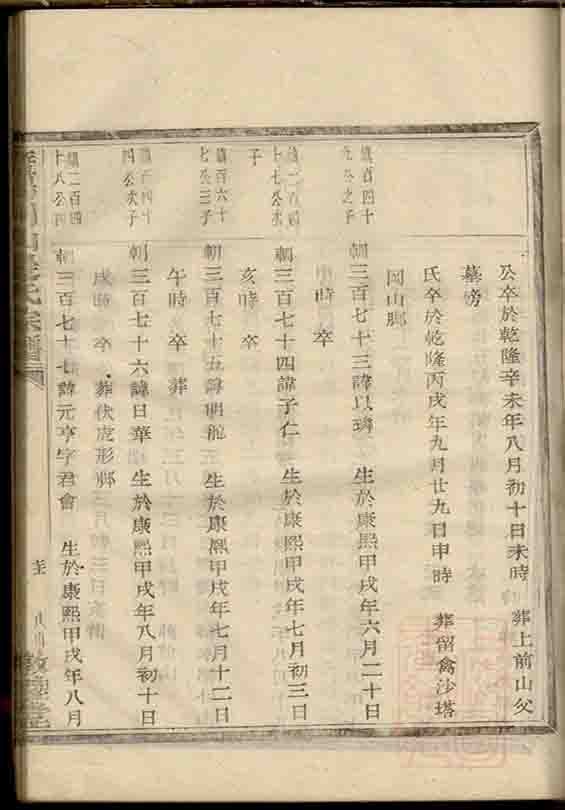 公卒於乾隆辛未年八月初十日未時 葬上前山父
墓塝
氏卒於乾隆丙戌年九月廿九日申時 葬留禽沙塔
岡山脚
鎮百四十
九公之子
朝三百七十三諱以璘 生於康熙甲戌年六月二十日
申時 卒
鎮二百四
十七公十
子
朝三百七十四諱子仁 生於康熙甲戌年七月初三日
亥時 卒
鎮百六十
七公三子
朝三百七十五諱明 生於康熙甲戌年七月十二日
午時 卒 葬
鎮百四十
四公次子
朝三百七十六諱日華 生於康熙甲戌年八月初十日
戌時 卒 葬伏虎形
鎮二百四
十八公四
朝三百七十七諱元亨字君會 生於康熙甲戌年八月
氏宗譜